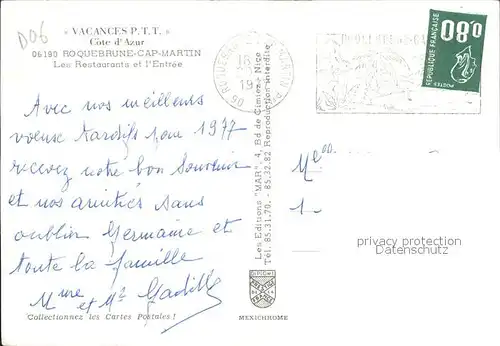 D06
« VACANCES P.T.T. »
Côte d'Azur
06190 ROQUEBRUNE-CAP-MARTIN
Les Restaurants et l'Entrée
Avec nos meilleurs
voeux tardifs pour 1977
recevez notre bon Souvenir
et nos amitiés sans
oublier Germaine et
toute la famille
Mme et Mr
Collectionnez les Cartes Postales !
Les Editions "MAR", 4, Bd de Cimiez - Nice
Tél. 85.31.70. - 85.32.82 Reproduction interdite
MEXICHROME
0.80
REPUBLIQUE FRANÇAISE
POSTES
privacy protection
Datenschutz